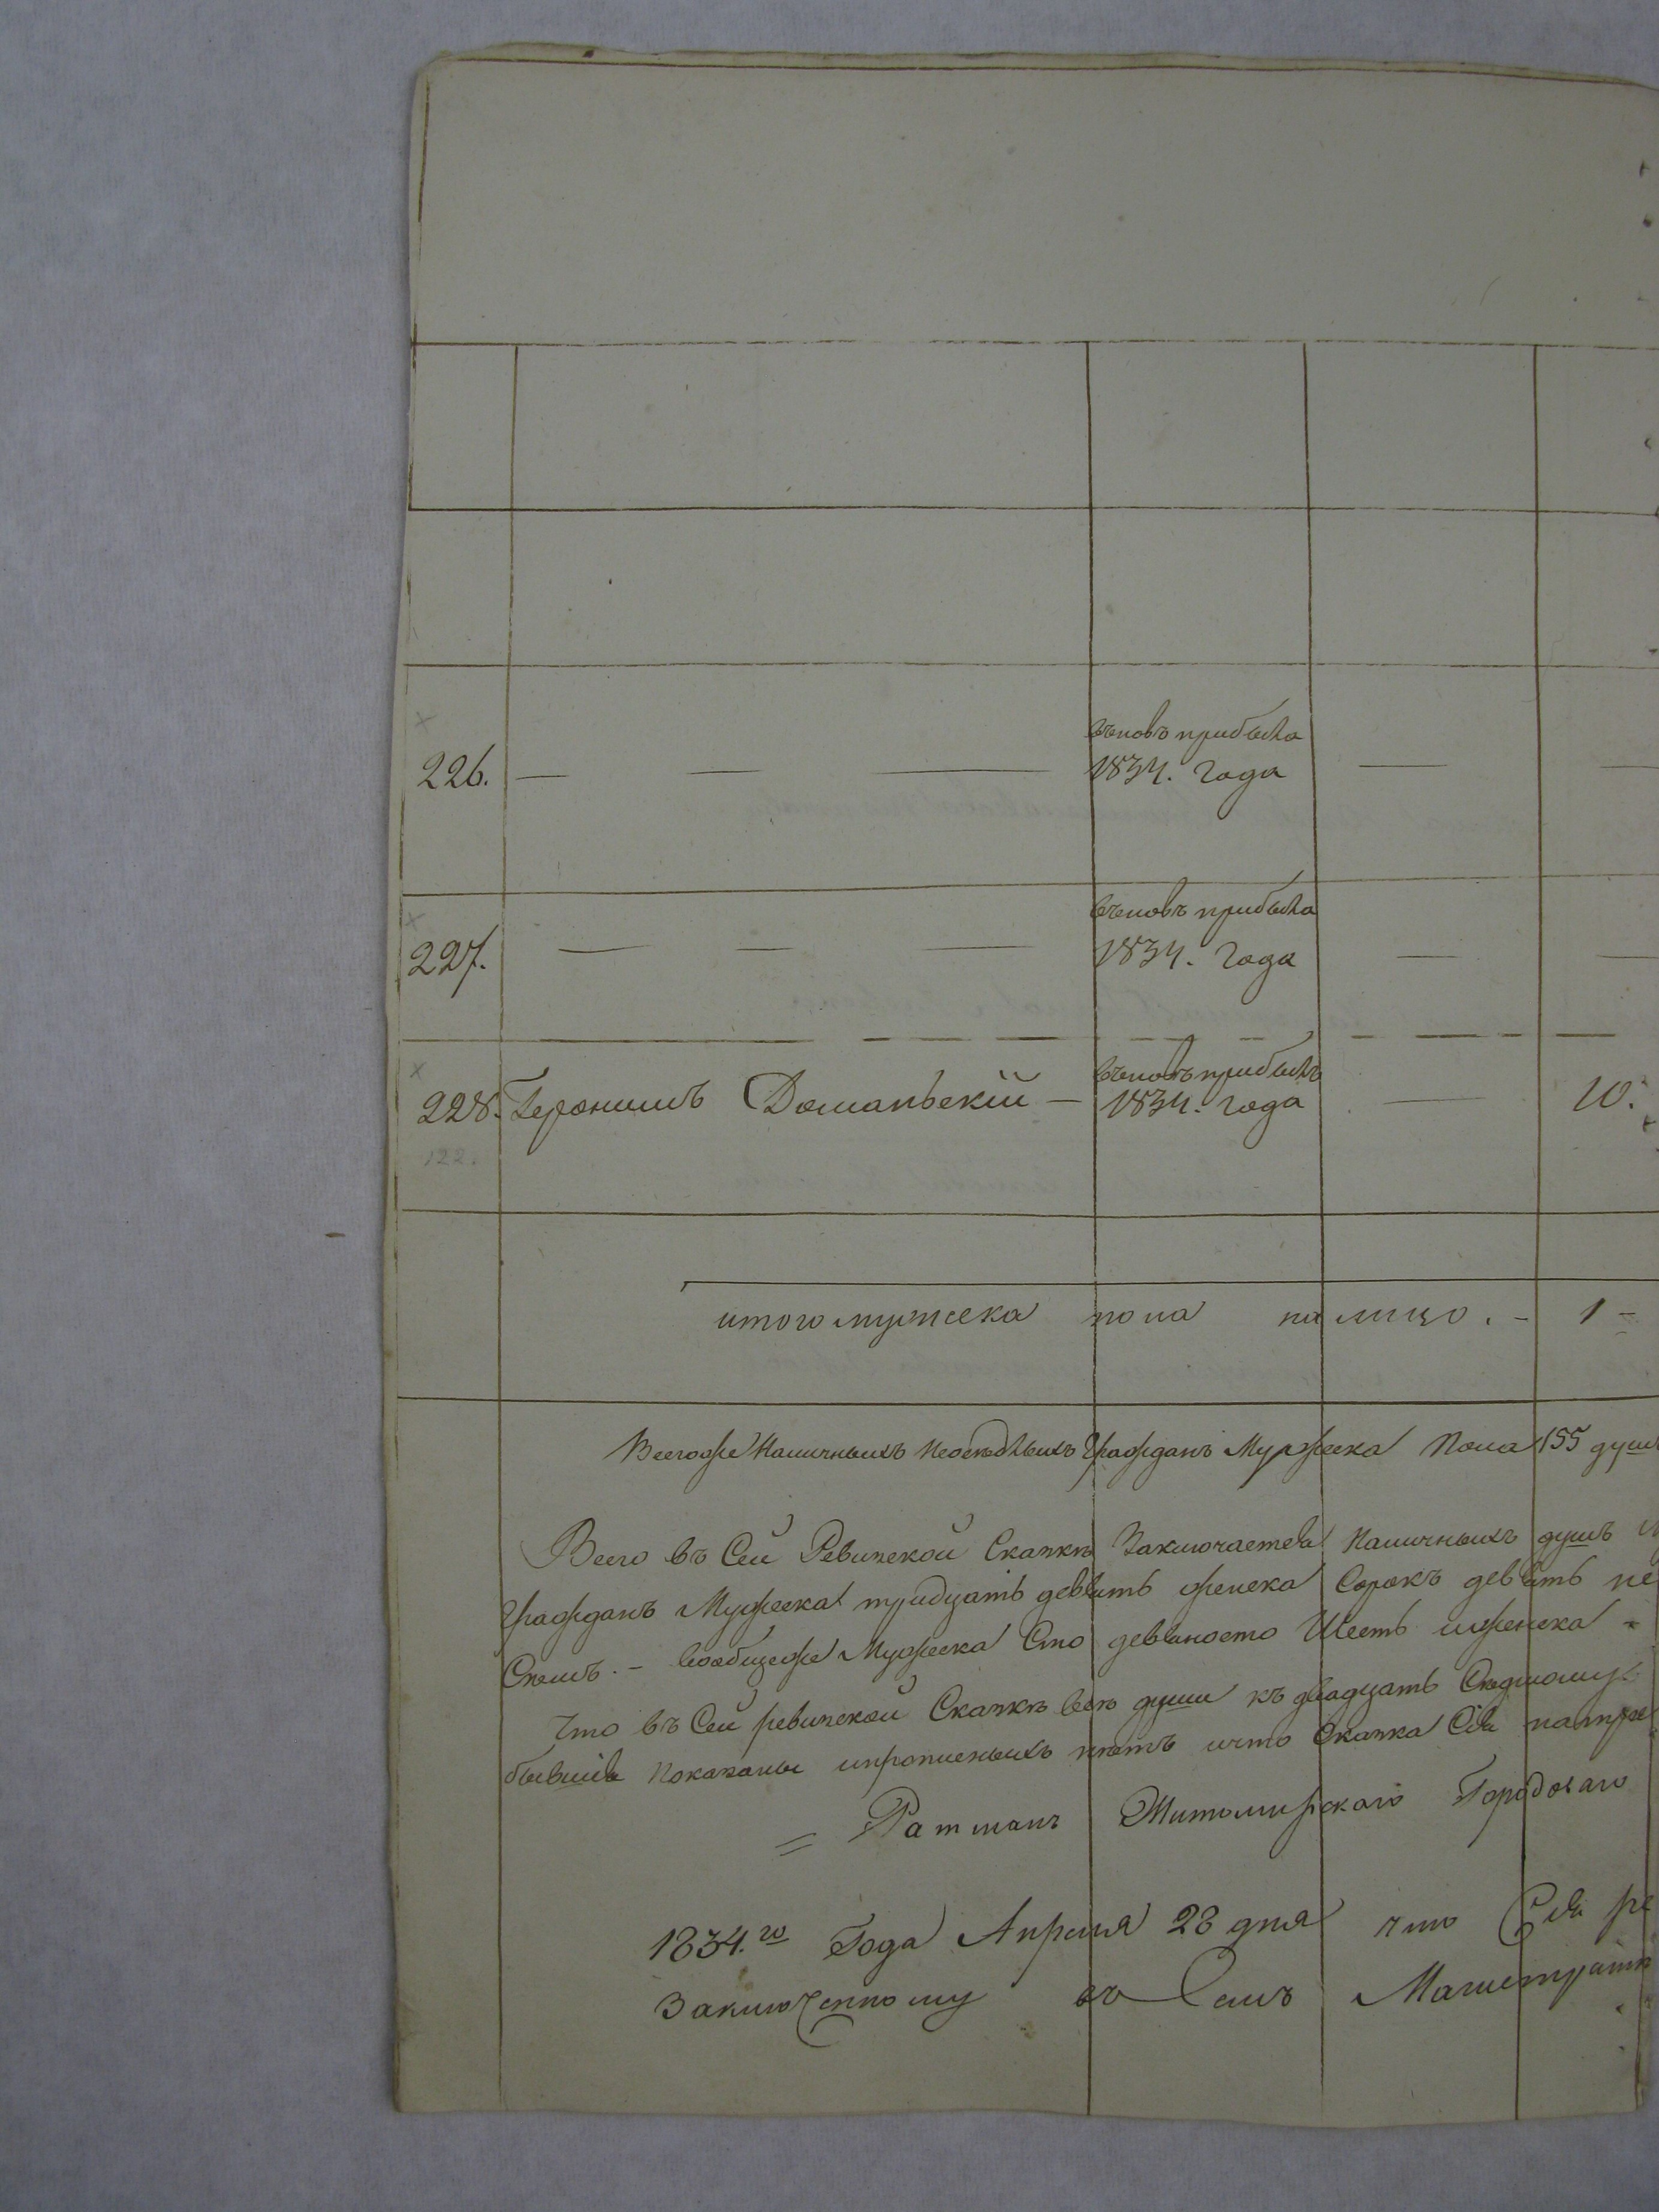 вьновь прибыла
226. — — — 1834. Года — —
вьновь прибыла
227. — — — 1834. Года — —
вьновь прибылъ
228. Геронимъ Доманьскій — 1834. года — 10.
122.
итого мужеска пола на лицо. - 1 -
Всегоже Наличныхъ Неосѣдлыхъ Гражданъ Мужеска Пола 155 душъ
Всего въ Сей Ревизской Сказкѣ Заключается Наличныхъ душъ
Гражданъ Мужеска тридцать девять женска Сорокъ девять не
Симъ. - вообщеже Мужеска Сто девяносто Шесть иженска -
Что въ Сей ревизской Сказкѣ всѣ души къ двадцать Седмому
бывшія показаны ипрописныхъ нѣтъ ичто Сказка Сія
= Ратманъ Житомирскаго Городоваго
1834.го Года Апреля 23 дня что Сія ре
Заключенному въ Семъ Магистратѣ